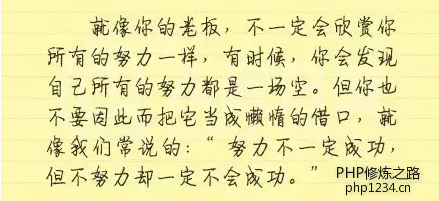 就像你的老板，不一定会欣赏你
所有的努力一样，有时候，你会发现
自己所有的努力都是一场空。但你也
不要因此而把它当成懒惰的借口，就
像我们常说的：“努力不一定成功，
但不努力却一定不会成功。”
PHP修炼之路
php1234.cn